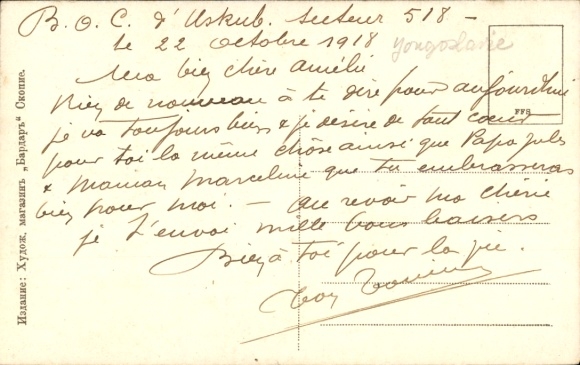 B.O.C. d'Uskub. Secteur 518 -
le 22 Octobre 1918
yougoslavie
Ma bien chère Amélie
Rien de nouveau à te dire pour aujourd'hui
je va toujours bien & je désire de tout coeur
pour toi la même chose ainsi que Papa Jules
& maman Marceline que tu embrasseras
bien pour moi. - Au revoir ma chérie
je t'envoi mille bons baisers
Bien à toi pour la vie.
Ton
FFS
Изданіе: Худож. магазинъ „Вардаръ“ Скопие.